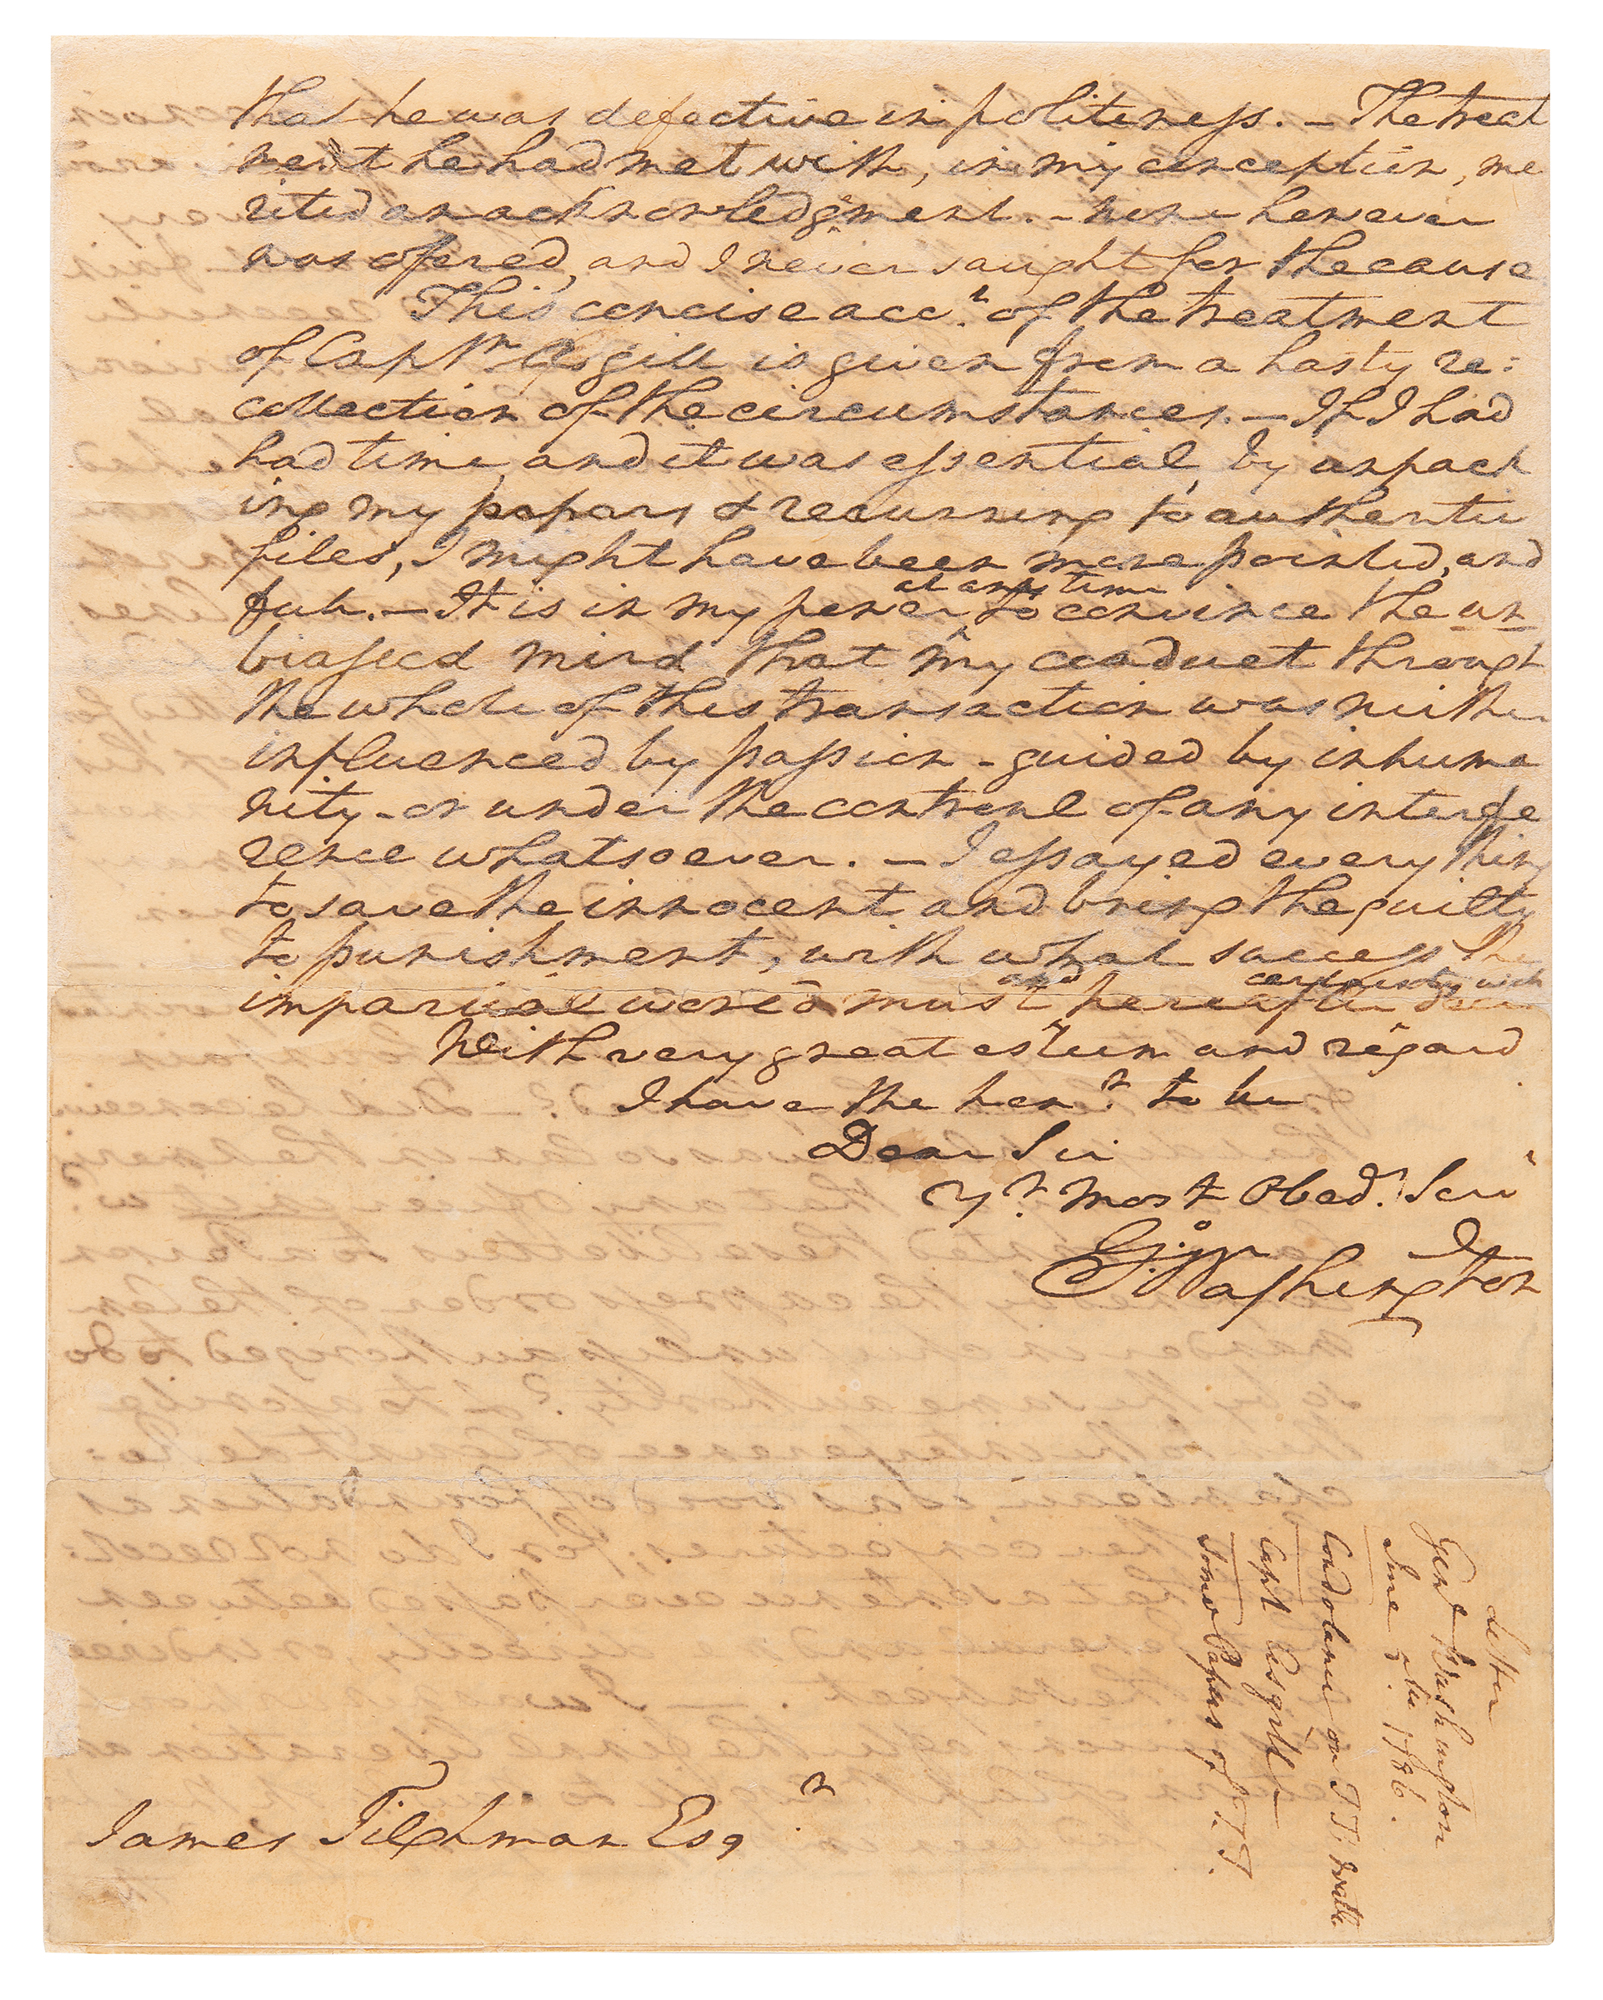 that he was defective in politeness. – The treat
ment he had met with, in my conception, me
rited an acknowledgment. – None however
was offered, and I never saught for the cause
This concise acc.t of the treatment
of Captn Asgill is given from a hasty re:
collection of the circumstances. – If I had
had time, and it was essential, by unpack
ing my papers & recurring to authentic
files, I might have been more pointed, and
full. – It is in my power, at any time to convince the un
biassed mind that my conduct through
the whole of this transaction was neither
influenced by passion – guided by inhuma
nity – or under the controul of any interfe
rence whatsoever. – I essayed every thing
to save the innocent and bring the guilty
to punishment, with what success the
impartial world must and hereafter certainly will
With very great esteem and regard
I have the hon.r to be
Dear Sir
Y.r most Obed.t Serv
Go: Washington
James Tilghman Esq.r
letter
Genl Washington
June 1786.
Condolance on T T:
Capt Asgill
Some Papers of T. T.